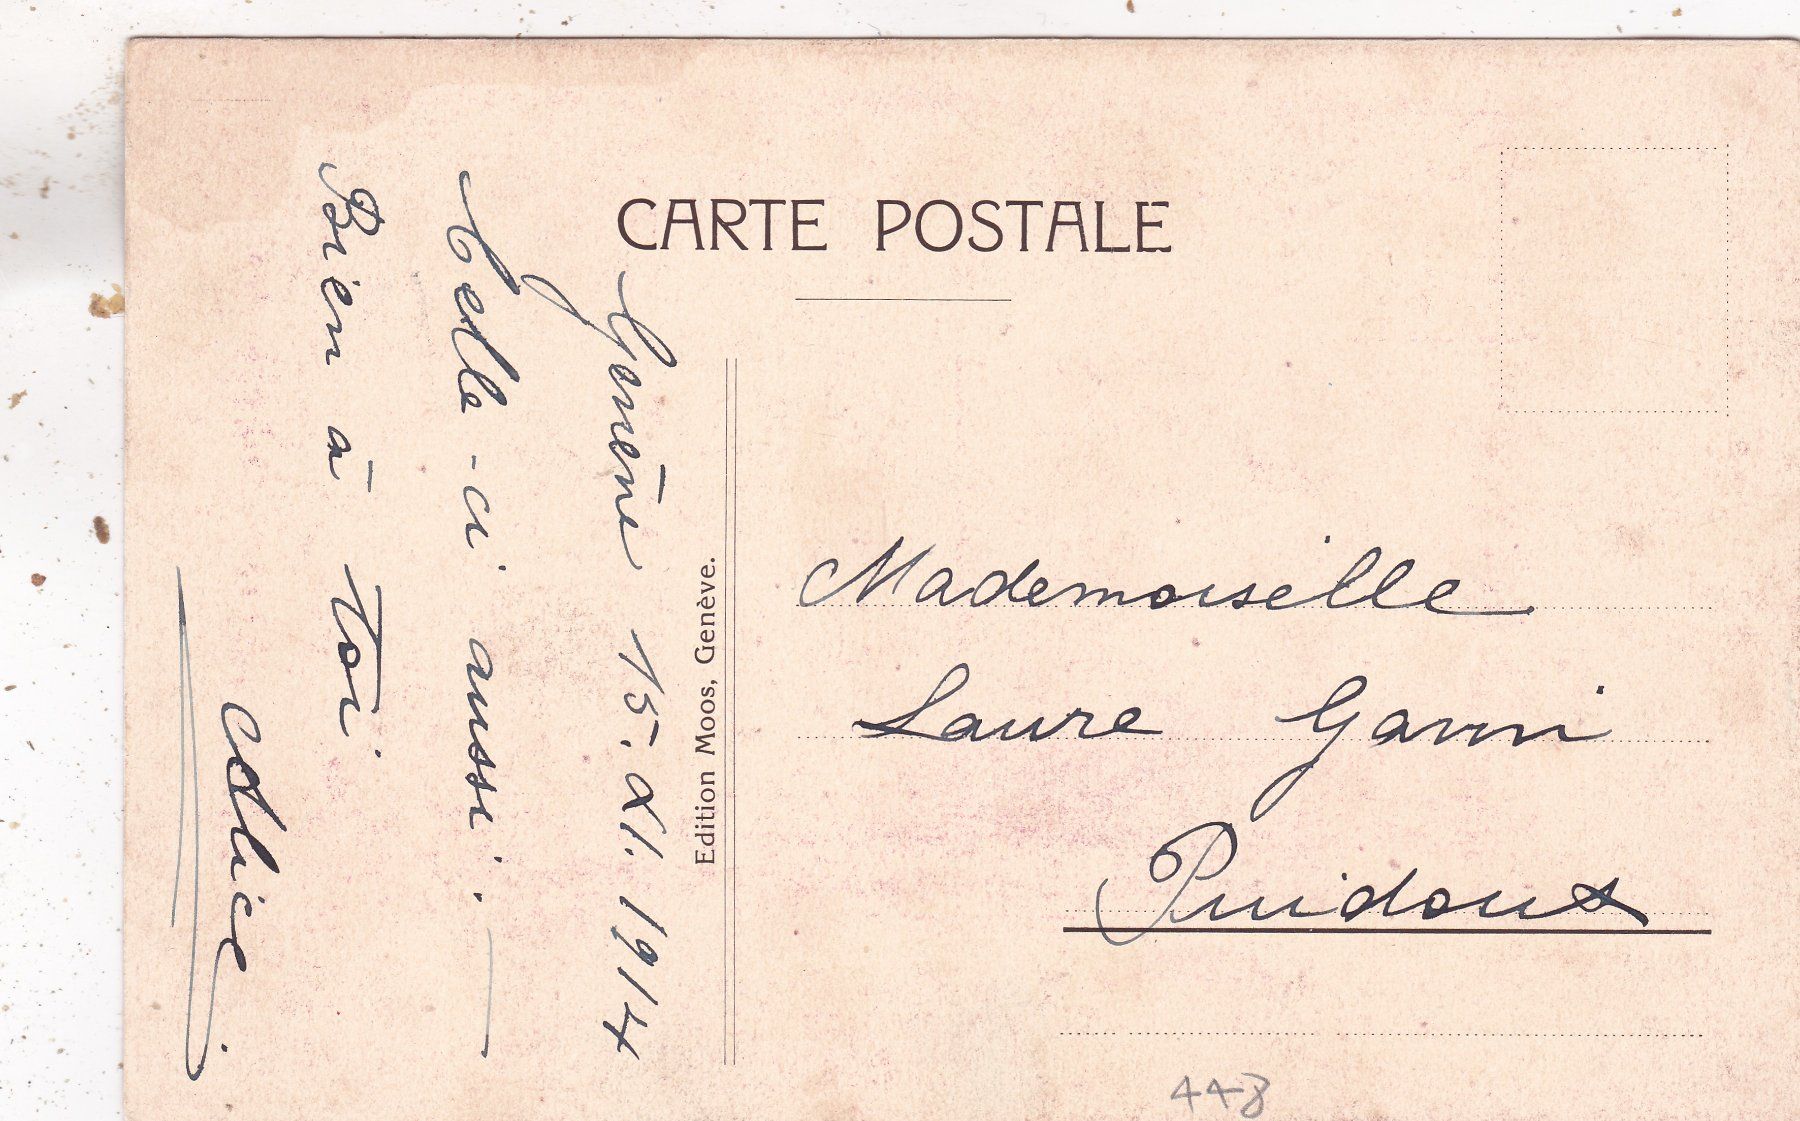 CARTE POSTALE
15. XI. 1914
Celle-ci aussi.
Bien à toi
Alice.
Edition Moos, Genève.
Mademoiselle
Laure
Puidoux
448